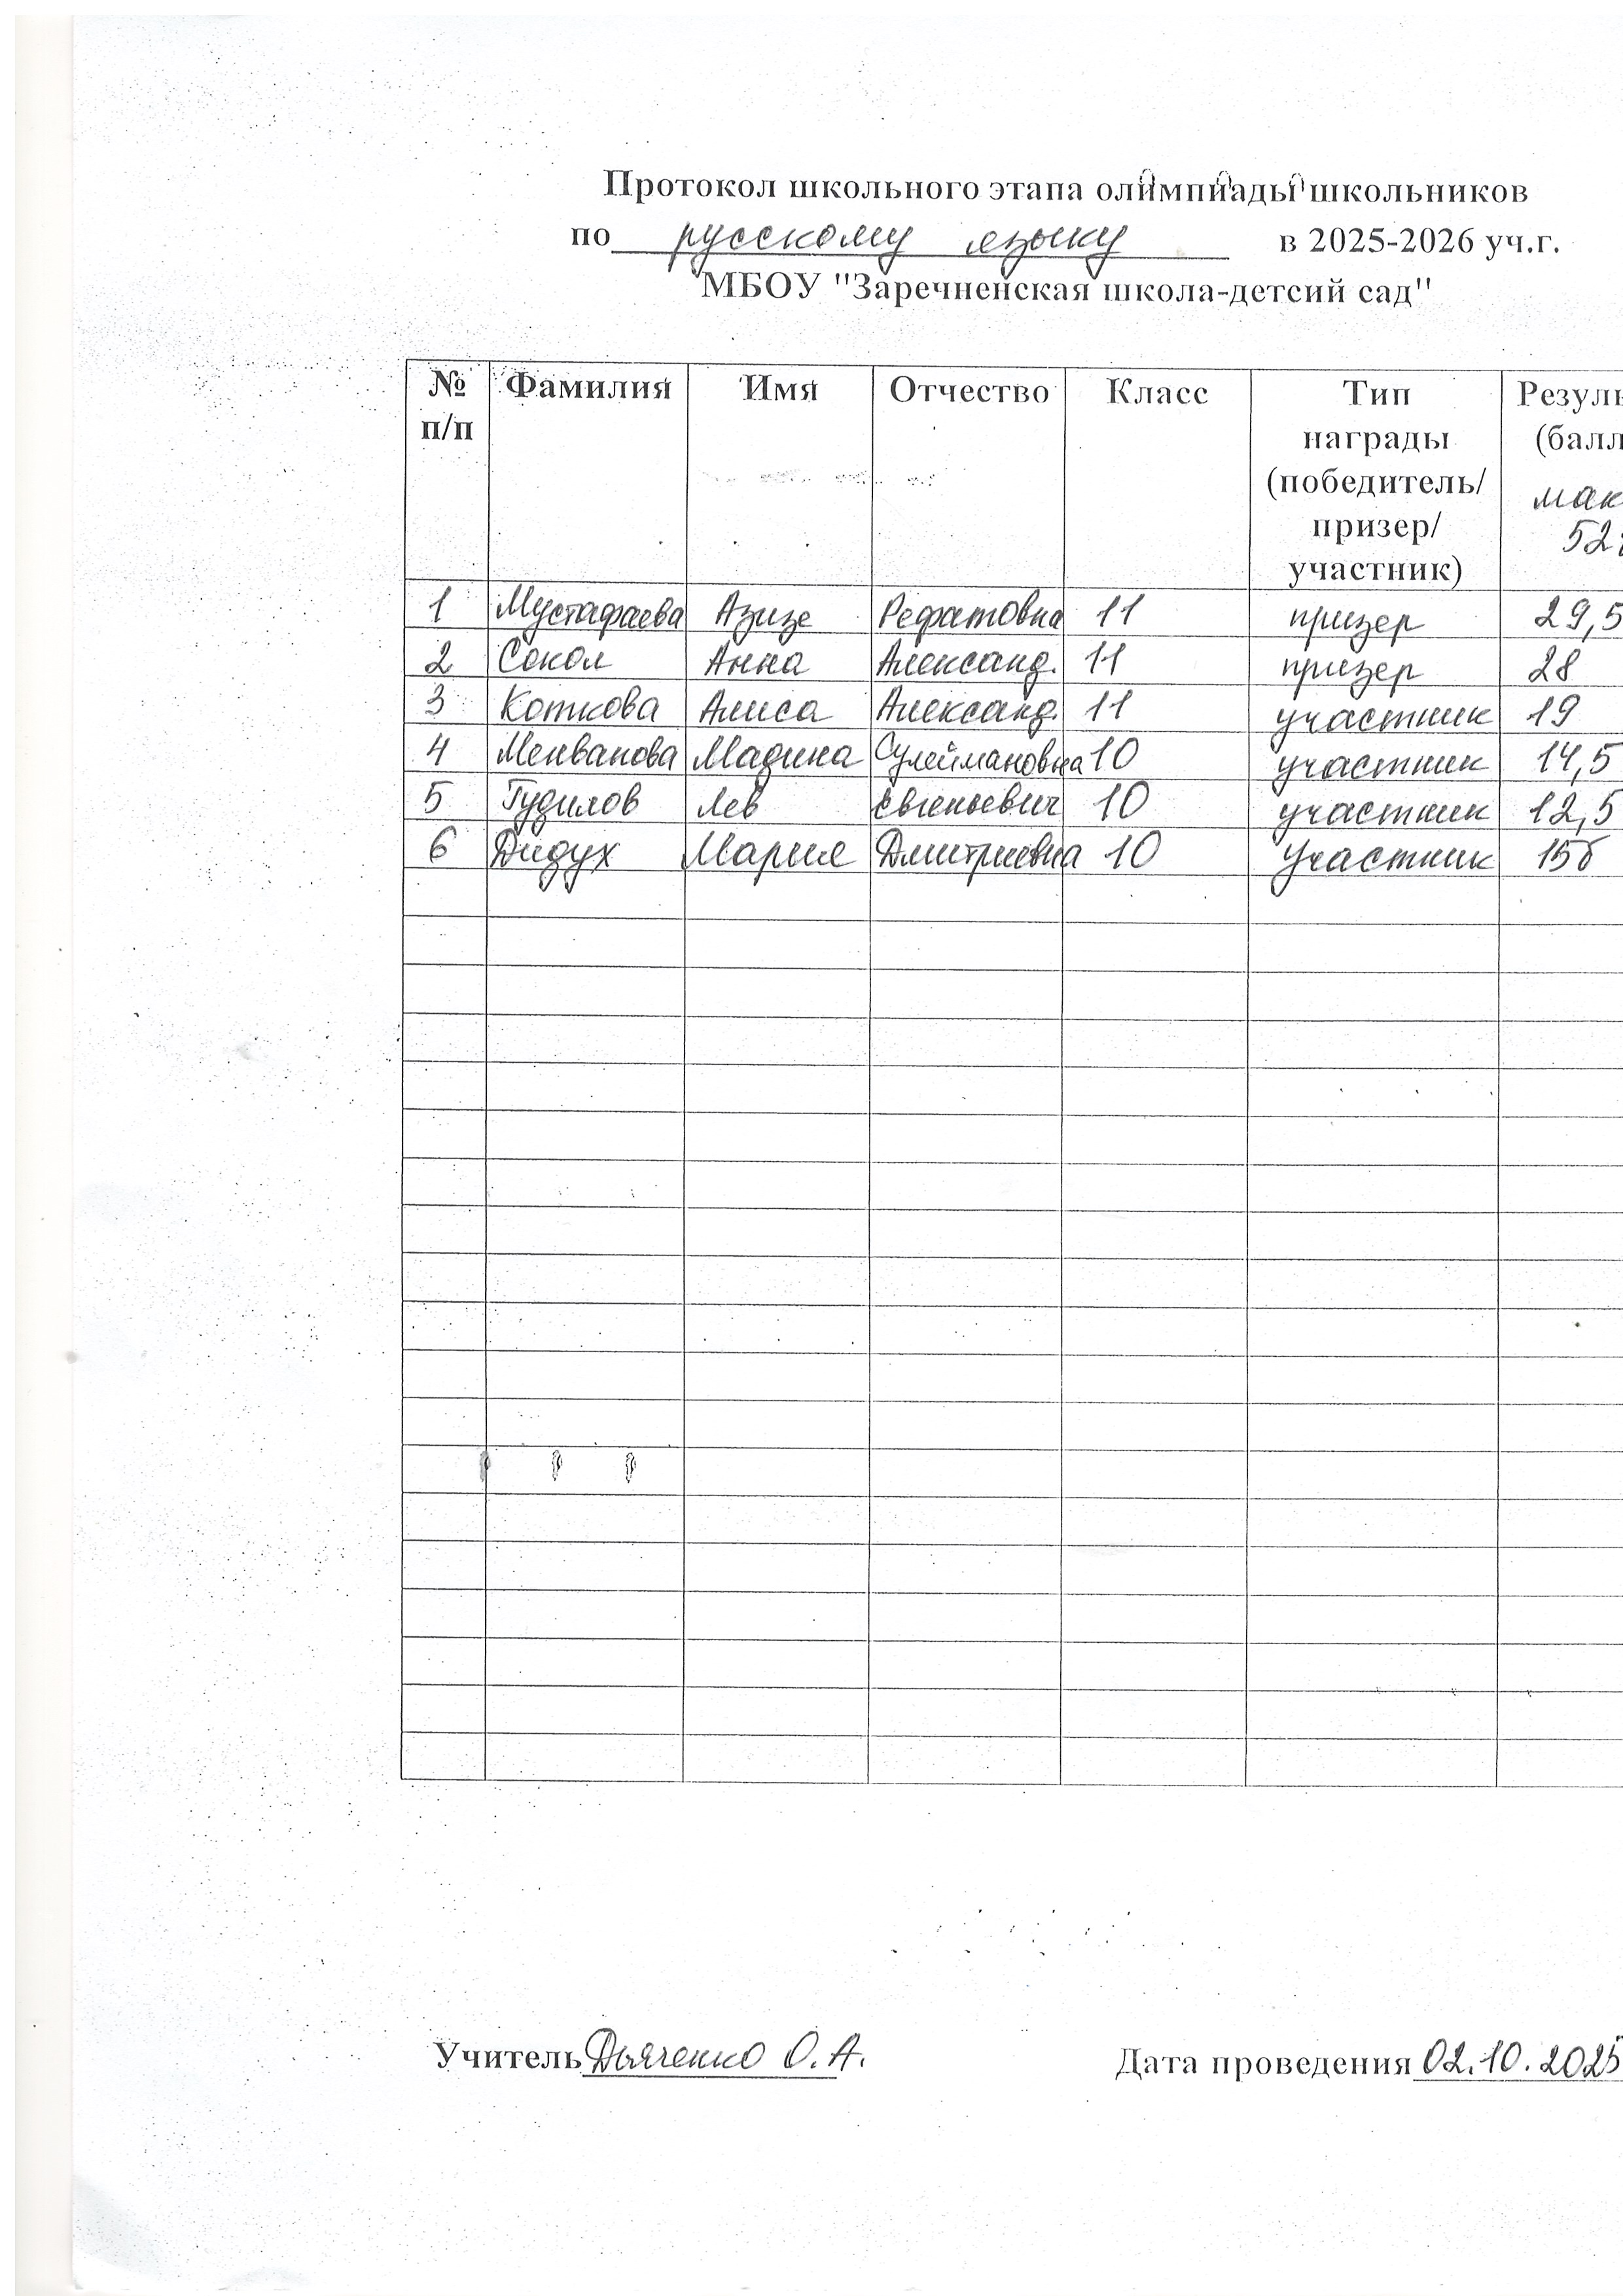 Протокол школьного этапа олимпиады школьников
по русскому языку в 2025-2026 уч.г.
МБОУ "Заречненская школа-детсий сад"
№ п/п Фамилия Имя Отчество Класс Тип награды (победитель/ призер/ участник) Резуль (балл мак 52
1 Мустафаева Азизе Рефатовна 11 призер 29,5
2 Сокол Анна Александ. 11 призер 28
3 Коткова Алиса Александ. 11 участник 19
4 Менванова Мадина Сулеймановна 10 участник 14,5
5 Гудилов Лев Евгеньевич 10 участник 12,5
6 Дидух Мария Дмитриевна 10 Участник 15б
Учитель Дьяченко О.А. Дата проведения 02.10.2025